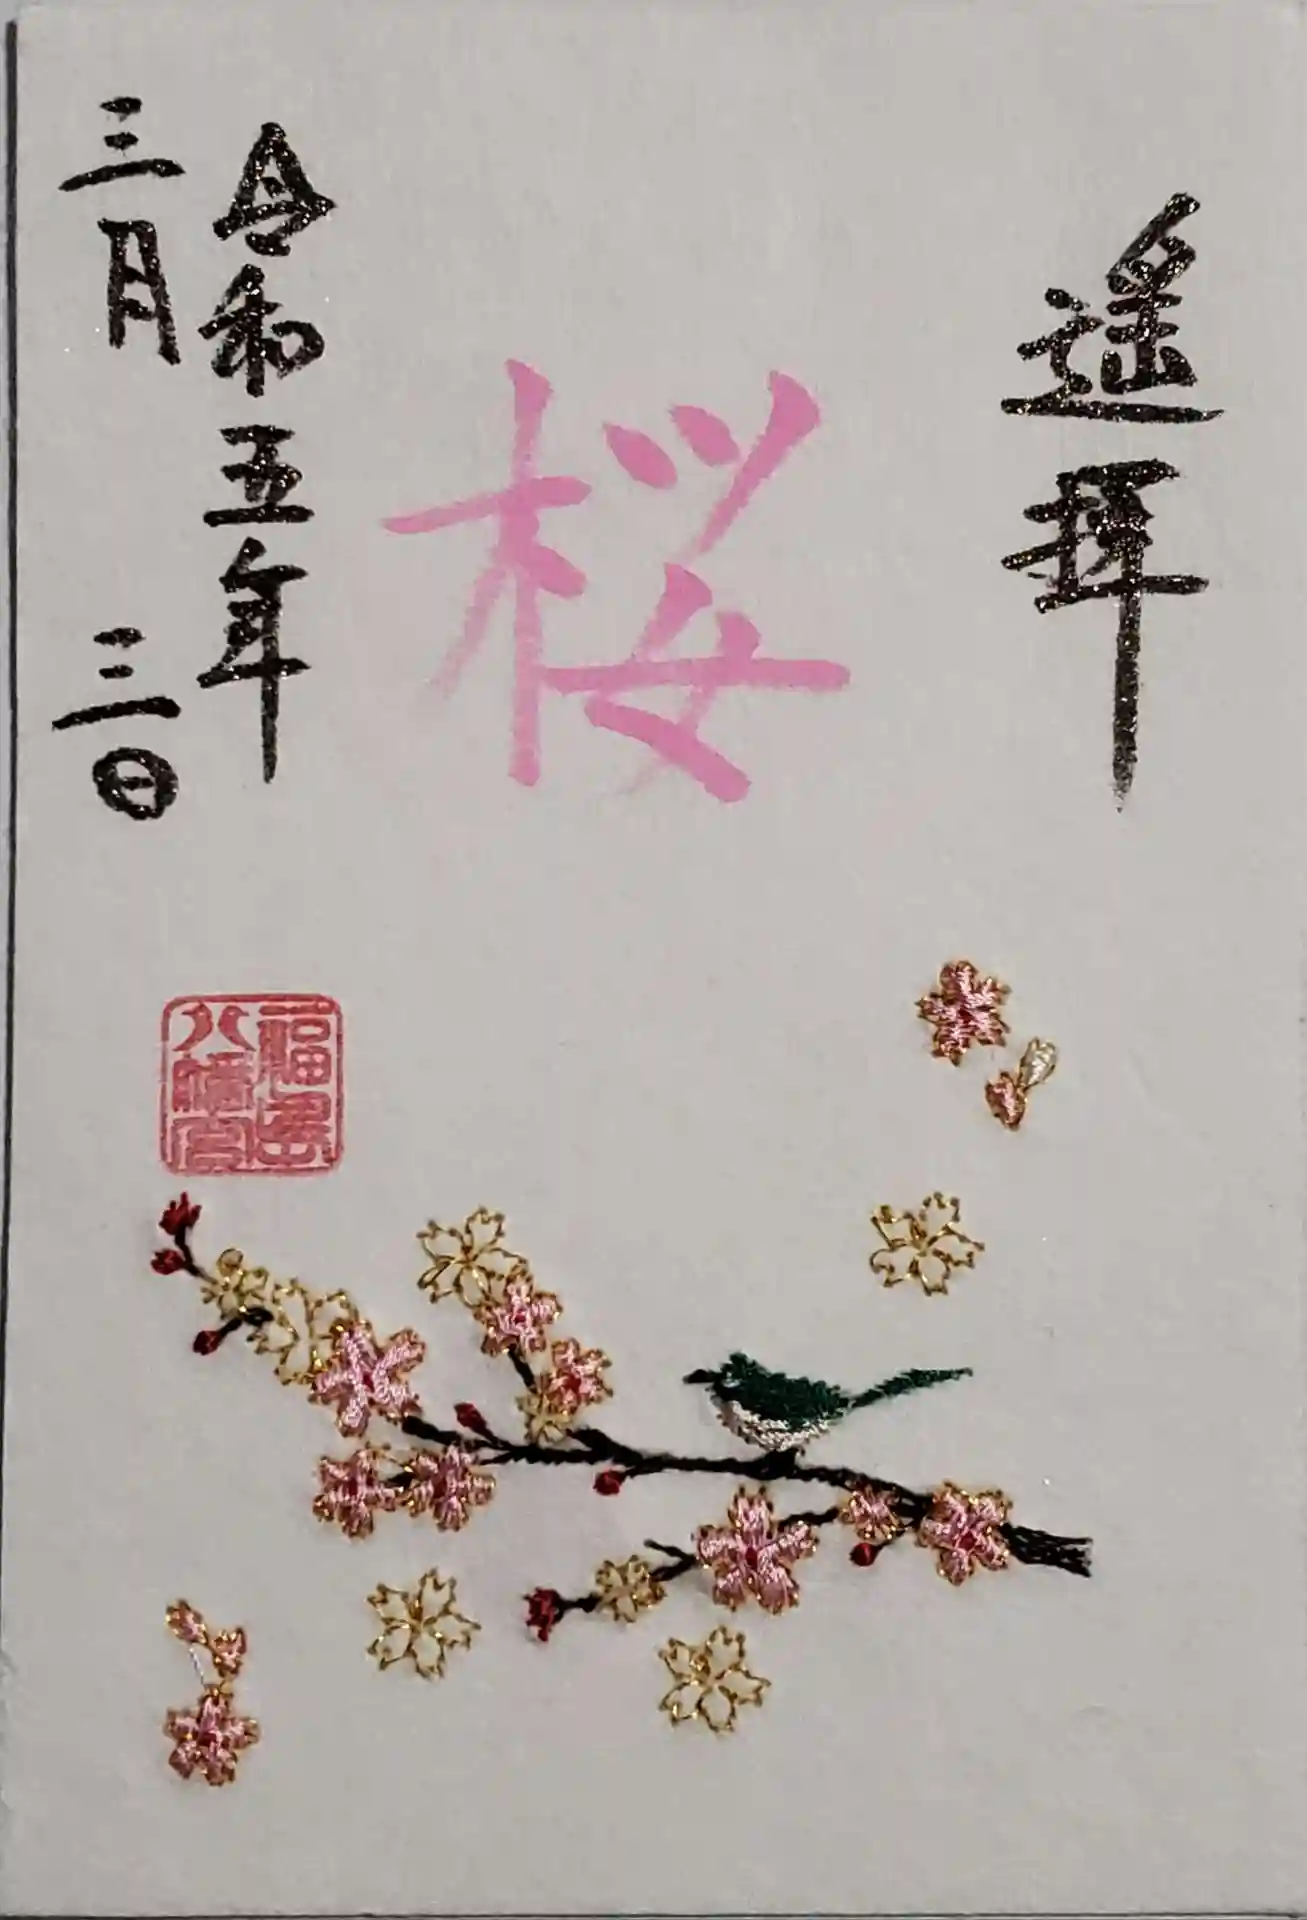 遥拝
桜
令和五年
三月　三日
福島
八幡宮